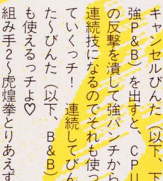 キャンセルびんた(以下、下
強P&B)を出すと、CPU
の反撃を潰して強パンチから
連続技になるのでそれも使っ
ていくっチ! 連続してびん
た〜びんた(以下 B&B)
も使えるっチよ♡
組み手2〜虎煌拳とりあえず